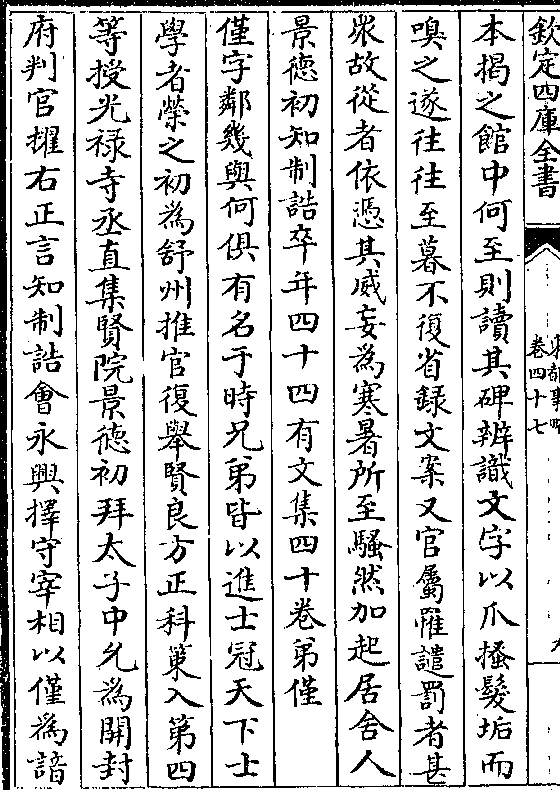 欽定四庫全書
卷四十七
本揭之館中何至則讀其碑辨識文字以爪搔髮垢而
嗅之遂往往至暮不復省録文案又官屬罹譴罰者甚
衆故從者依憑其威妄為寒暑所至騷然加起居舍人
景德初知制誥卒年四十四有文集四十卷弟僅
僅字鄰幾與何俱有名于時兄弟皆以進士冠天下士
學者榮之初為舒州推官復舉賢良方正科策入第四
等授光禄寺丞直集賢院景德初拜太子中允為開封
府判官擢右正言知制誥會永興擇守宰相以僅為諳